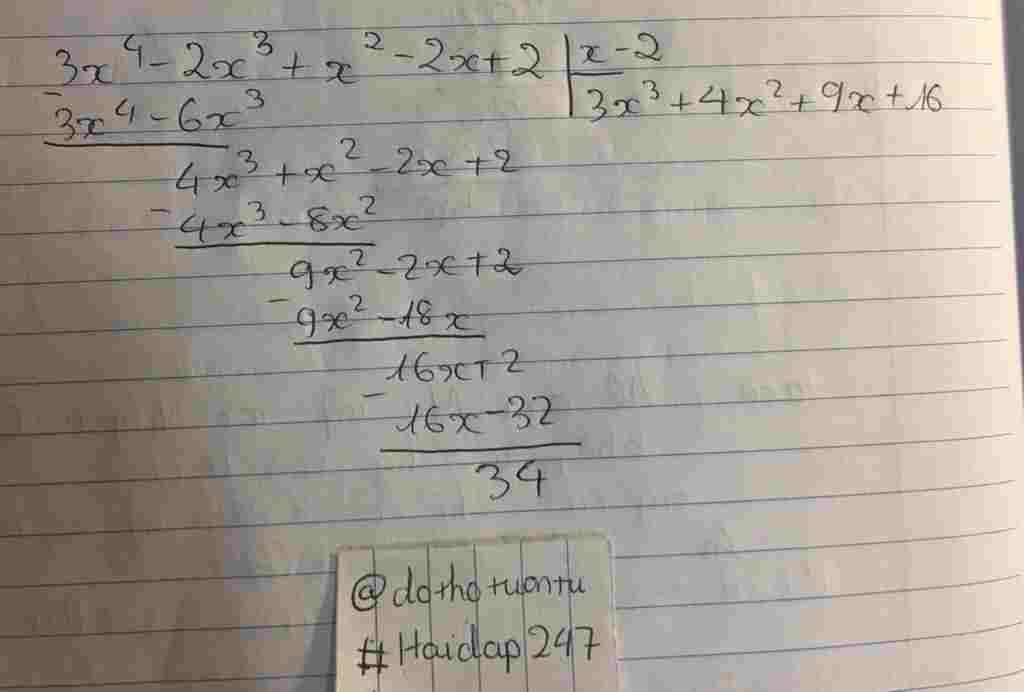 3x⁴ - 2x³ + x² - 2x + 2 | x - 2
- 3x⁴ - 6x³ | 3x³ + 4x² + 9x + 16
4x³ + x² - 2x + 2
- 4x³ - 8x²
9x² - 2x + 2
- 9x² - 18x
16x + 2
- 16x - 32
34
@dothotuantu
#Hoidap247